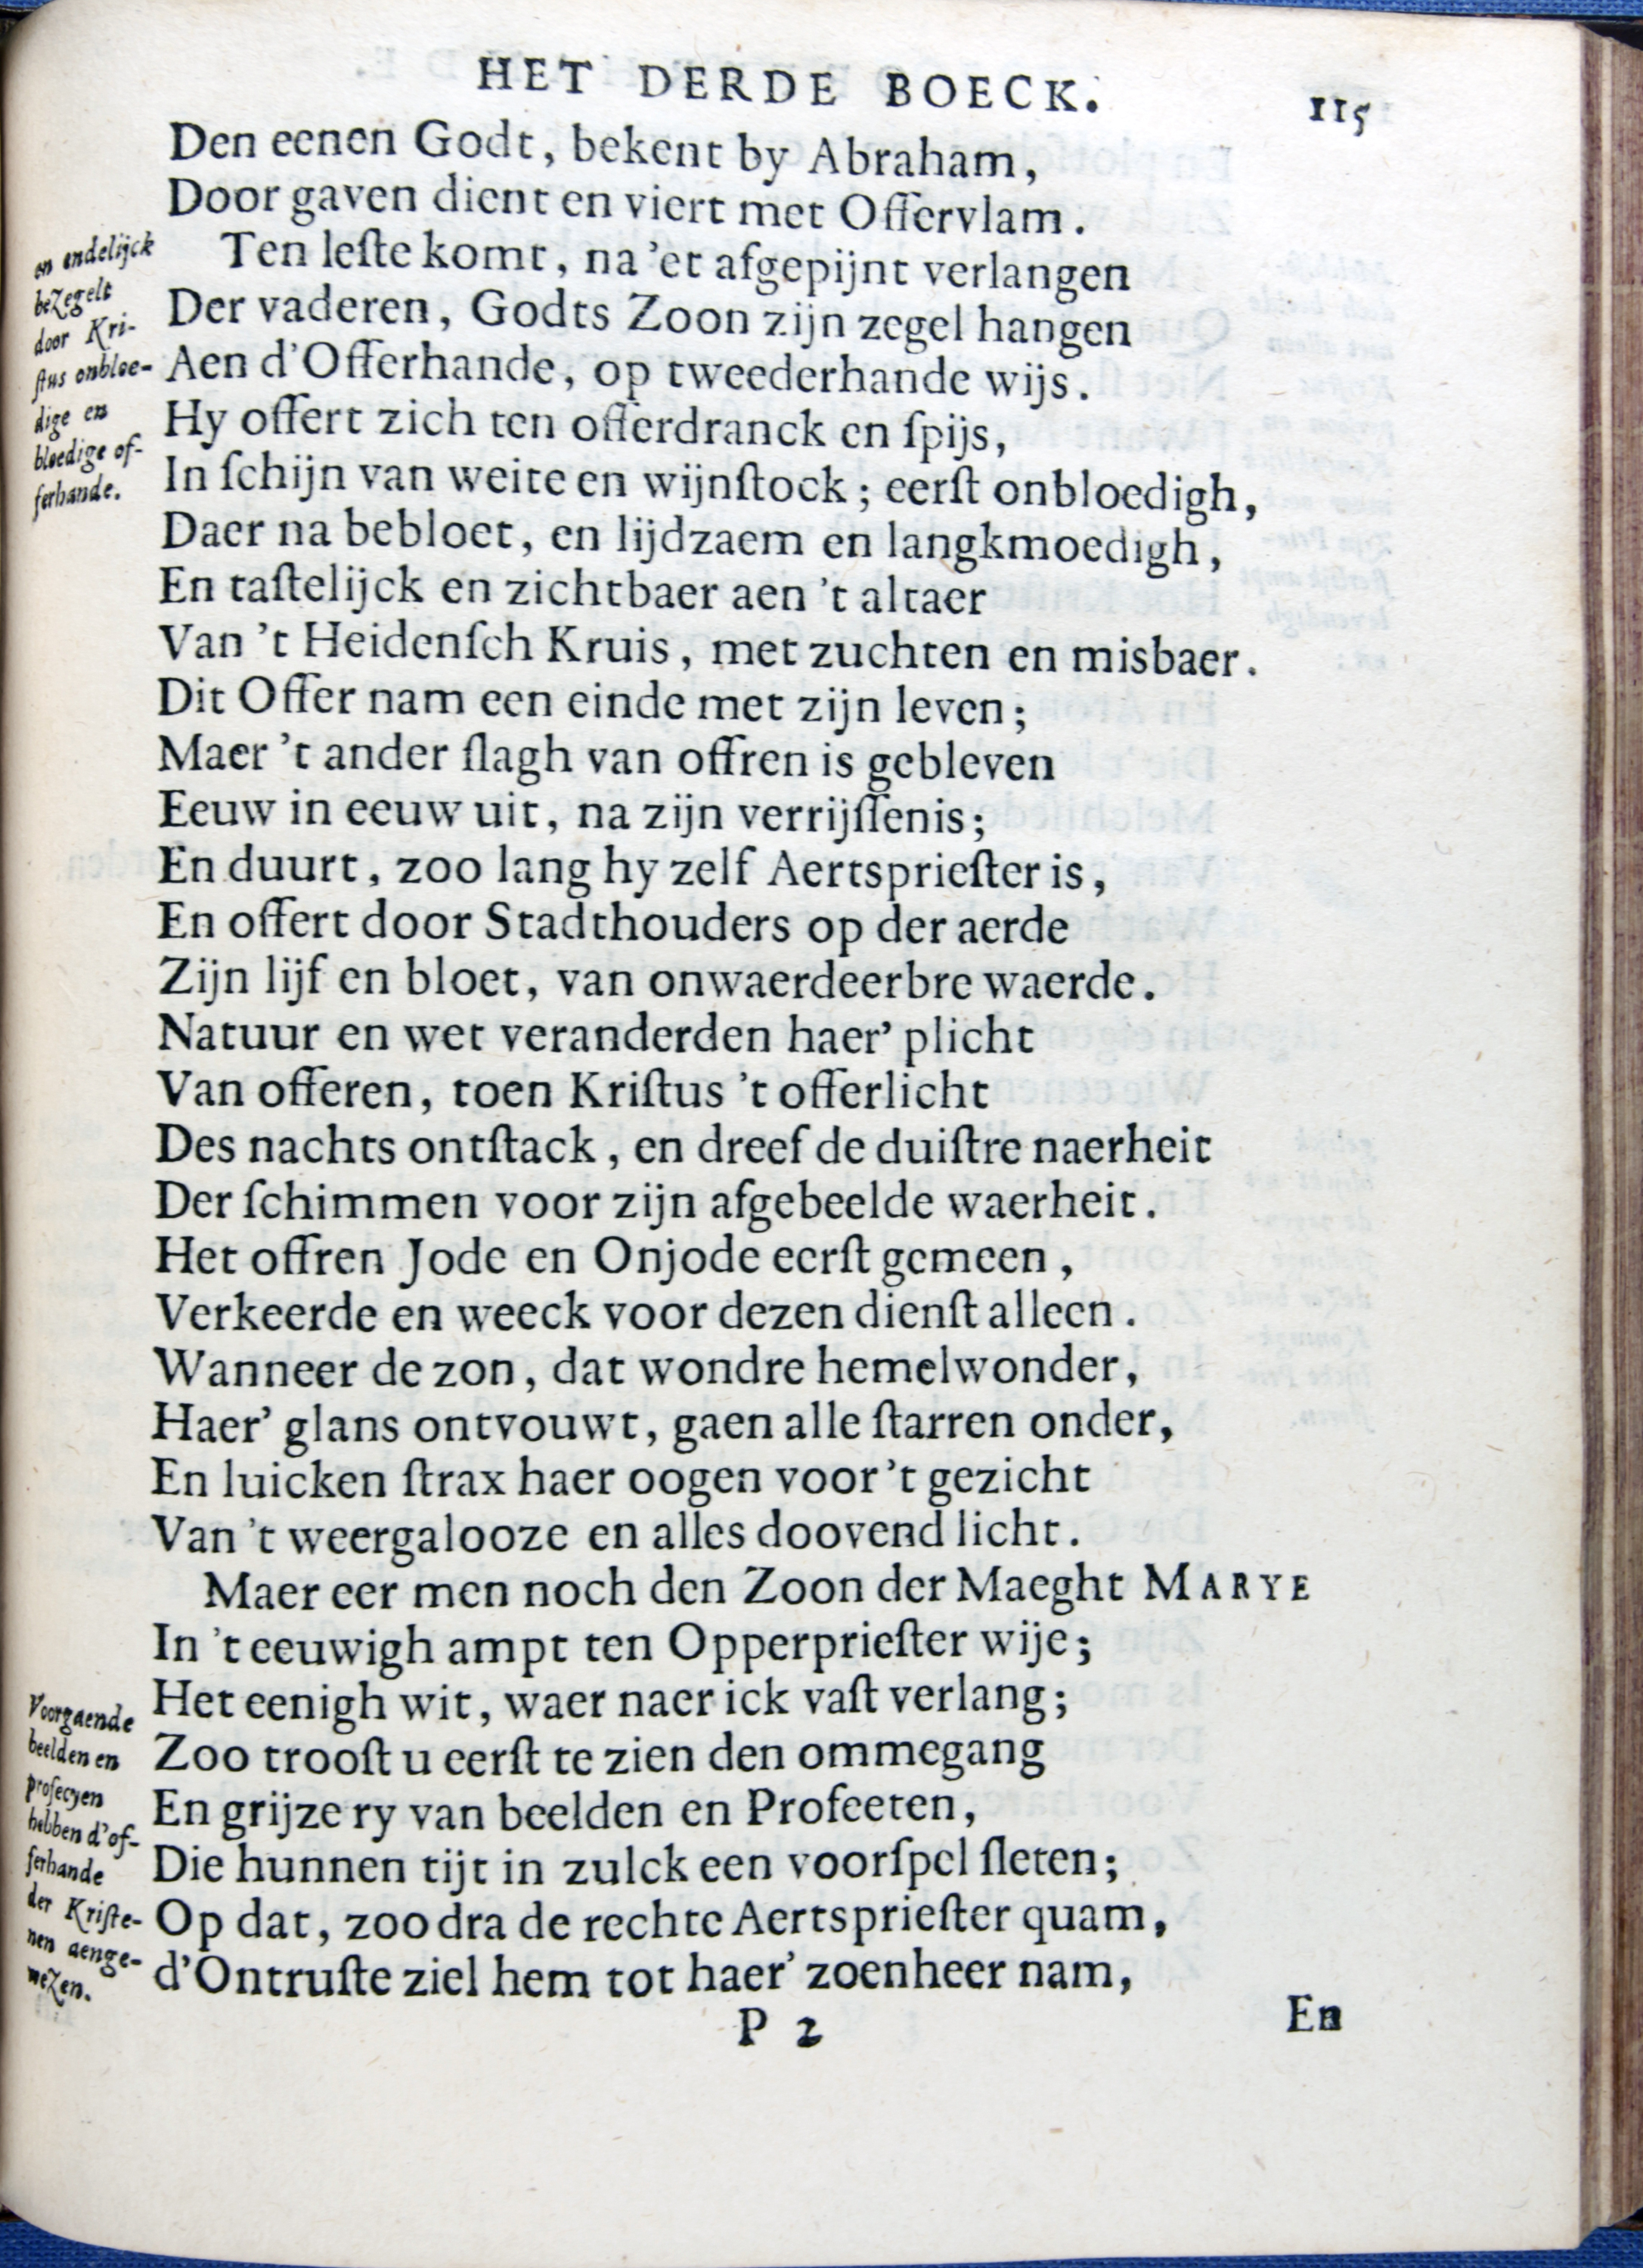 HET DERDE BOECK.
115
Den eenen Godt, bekent by Abraham,
Door gaven dient en viert met Offervlam.
Ten leſte komt, na 'et afgepijnt verlangen
Der vaderen, Godts Zoon zijn zegel hangen
Aen d'Offerhande, op tweederhande wijs.
Hy offert zich ten offerdranck en ſpijs,
In ſchijn van weite en wijnſtock; eerſt onbloedigh,
Daer na bebloet, en lijdzaem en langkmoedigh,
En taſtelijck en zichtbaer aen 't altaer
Van 't Heidenſch Kruis, met zuchten en misbaer.
Dit Offer nam een einde met zijn leven;
Maer 't ander ſlagh van offren is gebleven
Eeuw in eeuw uit, na zijn verrijſſenis;
En duurt, zoo lang hy zelf Aertsprieſter is,
En offert door Stadthouders op der aerde
Zijn lijf en bloet, van onwaerdeerbre waerde.
Natuur en wet veranderden haer' plicht
Van offeren, toen Kriſtus 't offerlicht
Des nachts ontſtack, en dreef de duiſtre naerheit
Der ſchimmen voor zijn afgebeelde waerheit.
Het offren Jode en Onjode eerſt gemeen,
Verkeerde en weeck voor dezen dienſt alleen.
Wanneer de zon, dat wondre hemelwonder,
Haer' glans ontvouwt, gaen alle ſtarren onder,
En luicken ſtrax haer oogen voor 't gezicht
Van 't weergalooze en alles doovend licht.
Maer eer men noch den Zoon der Maeght MARYE
In 't eeuwigh ampt ten Opperprieſter wije;
Het eenigh wit, waer naer ick vaſt verlang;
Zoo trooſt u eerſt te zien den ommegang
En grijze ry van beelden en Profeeten,
Die hunnen tijt in zulck een voorſpel ſleten;
Op dat, zoo dra de rechte Aertsprieſter quam,
d'Ontruſte ziel hem tot haer' zoenheer nam,
P 2
En
en endelijck
beZegelt
door Kri-
ſtus onbloe-
dige en
bloedige of-
ferhande.
Voorgaende
beelden en
profecyen
hebben d'of-
ferhande
der Kriſte-
nen aenge-
weZen.